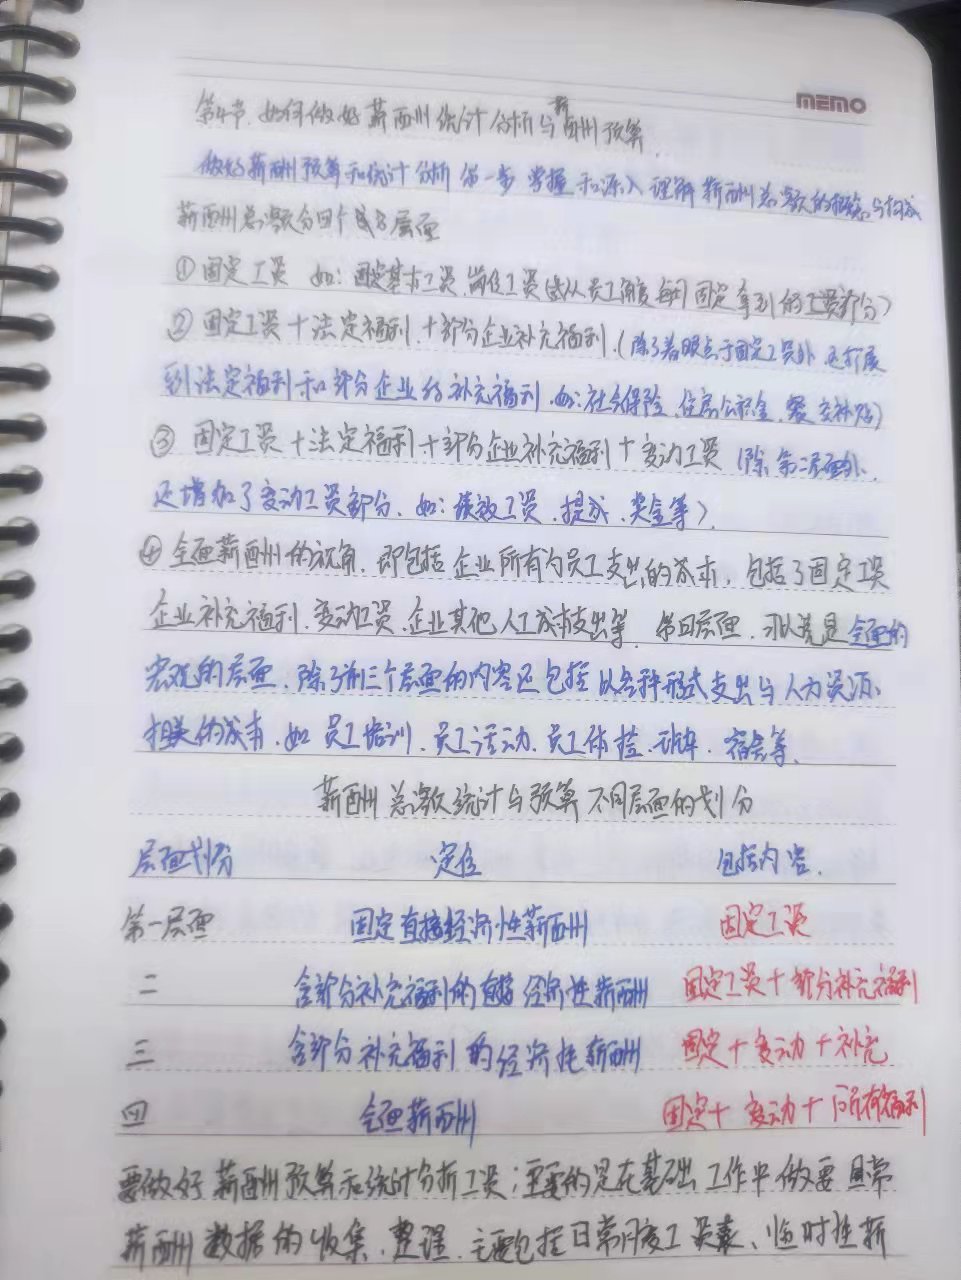 memo
第4节. 如何做好薪酬统计分析与薪酬预算.
做好薪酬预算和统计分析第一步掌握和深入理解薪酬总额的概念与构成
薪酬总额分四个层面
①固定工资 如: 固定基本工资.岗位工资(从员工角度每月固定拿到的工资部分)
②固定工资+法定福利.+部分企业补充福利.(除了着眼点于固定工资外 还扩展
到法定福利和部分企业的补充福利.如:社会保险.住房公积金.餐交补贴)
③ 固定工资+法定福利+部分企业补充福利+变动工资 (除第二层面外.
还增加了变动工资部分.如:绩效工资.提成.奖金等).
④全面薪酬的视角.即包括企业所有为员工支出的成本.包括了固定工资
企业补充福利.变动工资.企业其他人工成本支出等.第四层面.可以说是全面的
宏观的层面.除了前三个层面的内容还包括以各种形式支出与人力资源.
相关的成本.如员工培训.员工活动.员工体检.班车.宿舍等.
薪酬总额统计与预算不同层面的划分
层面划分 定位 包括内容.
第一层面 固定直接经济性薪酬 固定工资
二 含部分补充福利的直接经济性薪酬 固定工资+部分补充福利
三 含部分补充福利的经济性薪酬 固定+变动+补充
四 全面薪酬 固定+变动+所有福利
要做好薪酬预算和统计分析工资;重要的是在基础工作中做要日常
薪酬数据的收集、整理.主要包括日常月度工资表、临时性薪